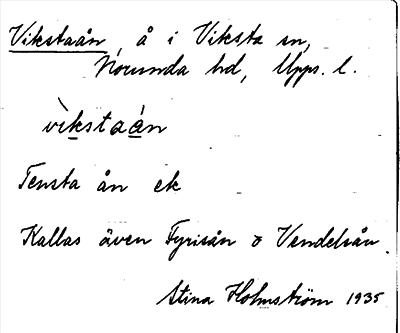 Vikstaån, å i Viksta sn,
Norunda hd, Upps. l.
vìkstaán
Tensta ån ek
Kallas även Fyrisån o Vendelsån.
Stina Holmström 1935